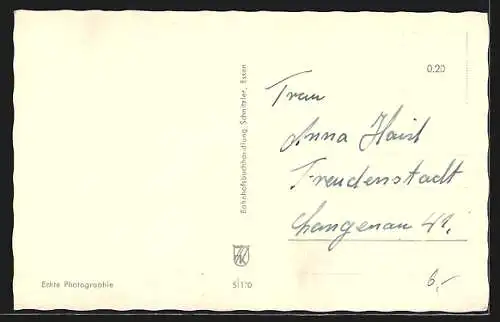 0.20
Frau
Anna Haist
Freudenstadt
Langenau 41.
6,-
Bahnhofsbuchhandlung Schnitzler, Essen
Echte Photographie
5/110